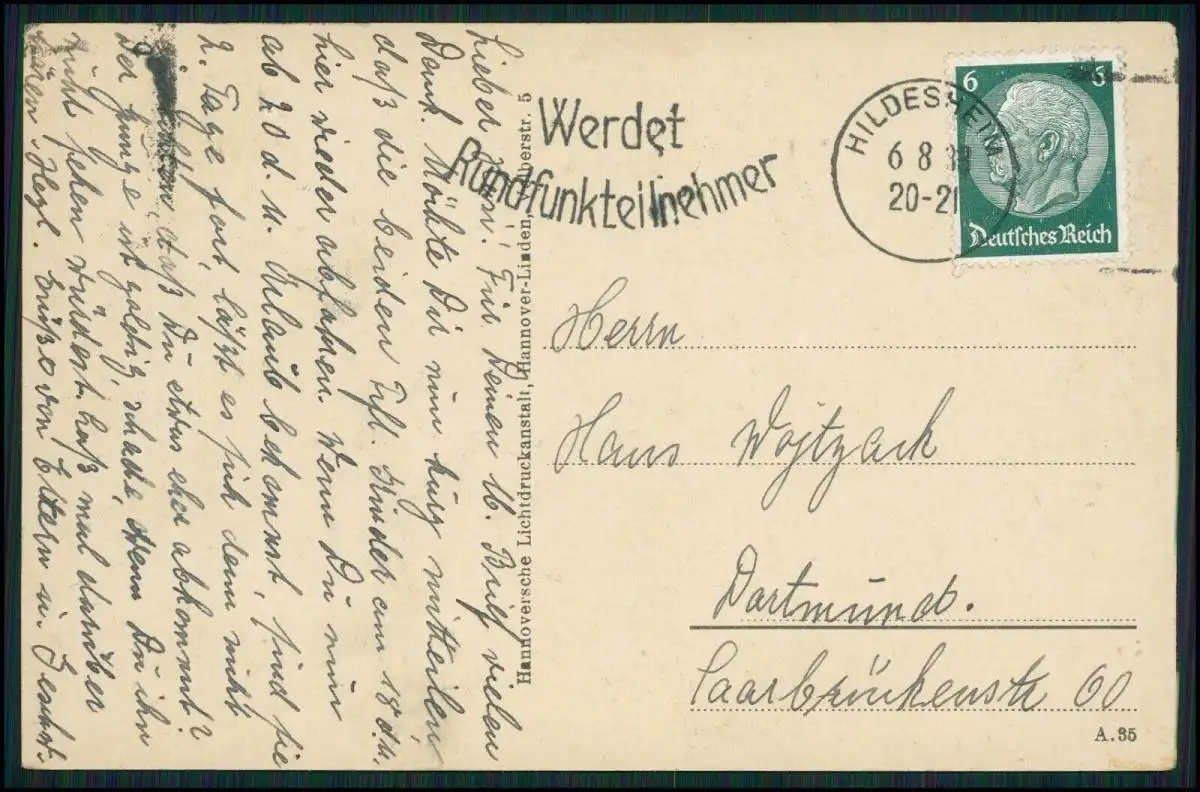 Lieber Hans! Für Deinen lb. Brief vielen
Dank. Möchte Dir nun kurz mitteilen,
daß die beiden Kinder am 18. d. M.
hier wieder abfahren. Wenn Du nun
ab 20 d. M. Urlaub bekommst, sind sie
2. Tage fort, läßt es sich denn nicht
daß Du etwas eher abkommst?
Der Junge ist goldig, schade, wenn Du ihn
nicht sehen würdest. Laß mal darüber
hören. Herzl. Grüße von Eltern u. Geschw.
Hannoversche Lichtdruckanstalt, Hannover-Linden, 5
Werdet
Rundfunkteilnehmer
HILDESHEIM
6 8 3
20-21
6 6
Deutsches Reich
Herrn
Hans Wojtzack
Dortmund.
Saarbrückenstr 60
A.35